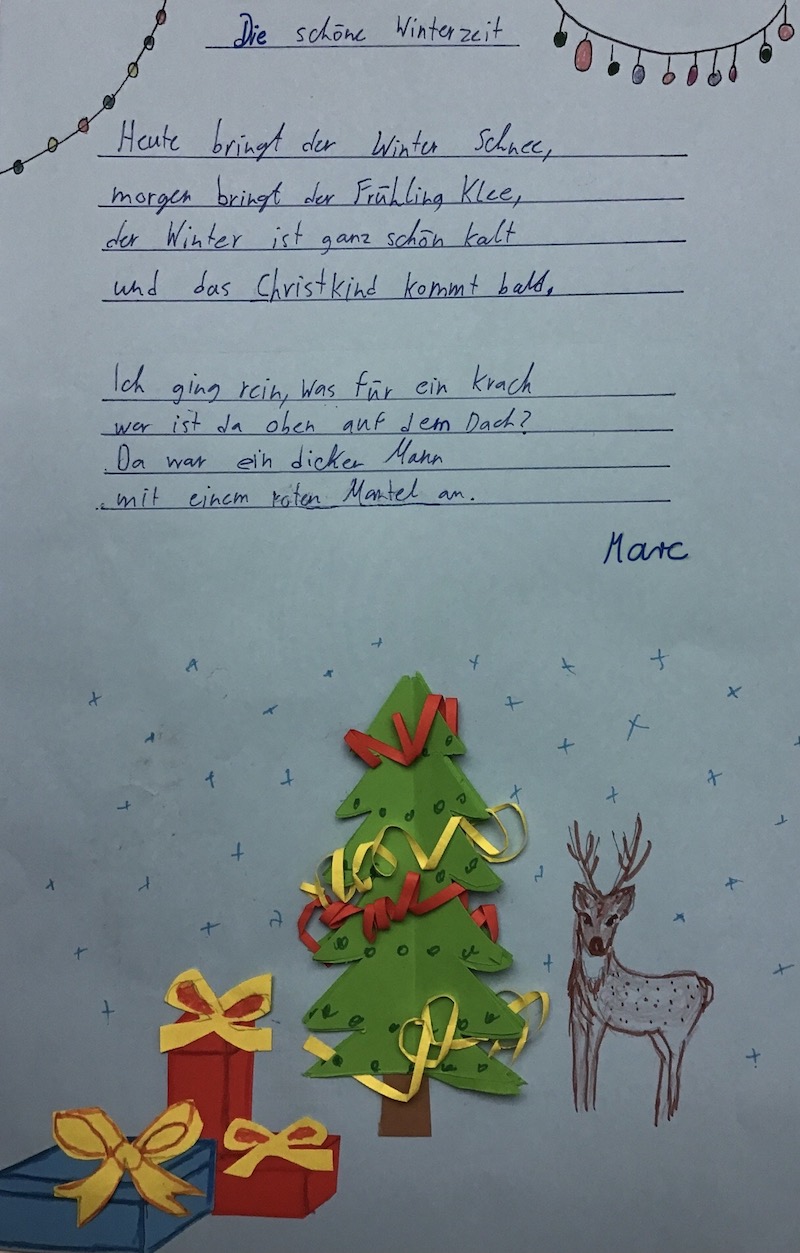 Die schöne Winterzeit
Heute bringt der Winter Schnee,
morgen bringt der Frühling Klee,
der Winter ist ganz schön kalt
und das Christkind kommt bald.
Ich ging rein, Was für ein Krach
wer ist da oben auf dem Dach?
Da war ein dicker Mann
mit einem roten Mantel an.
Marc